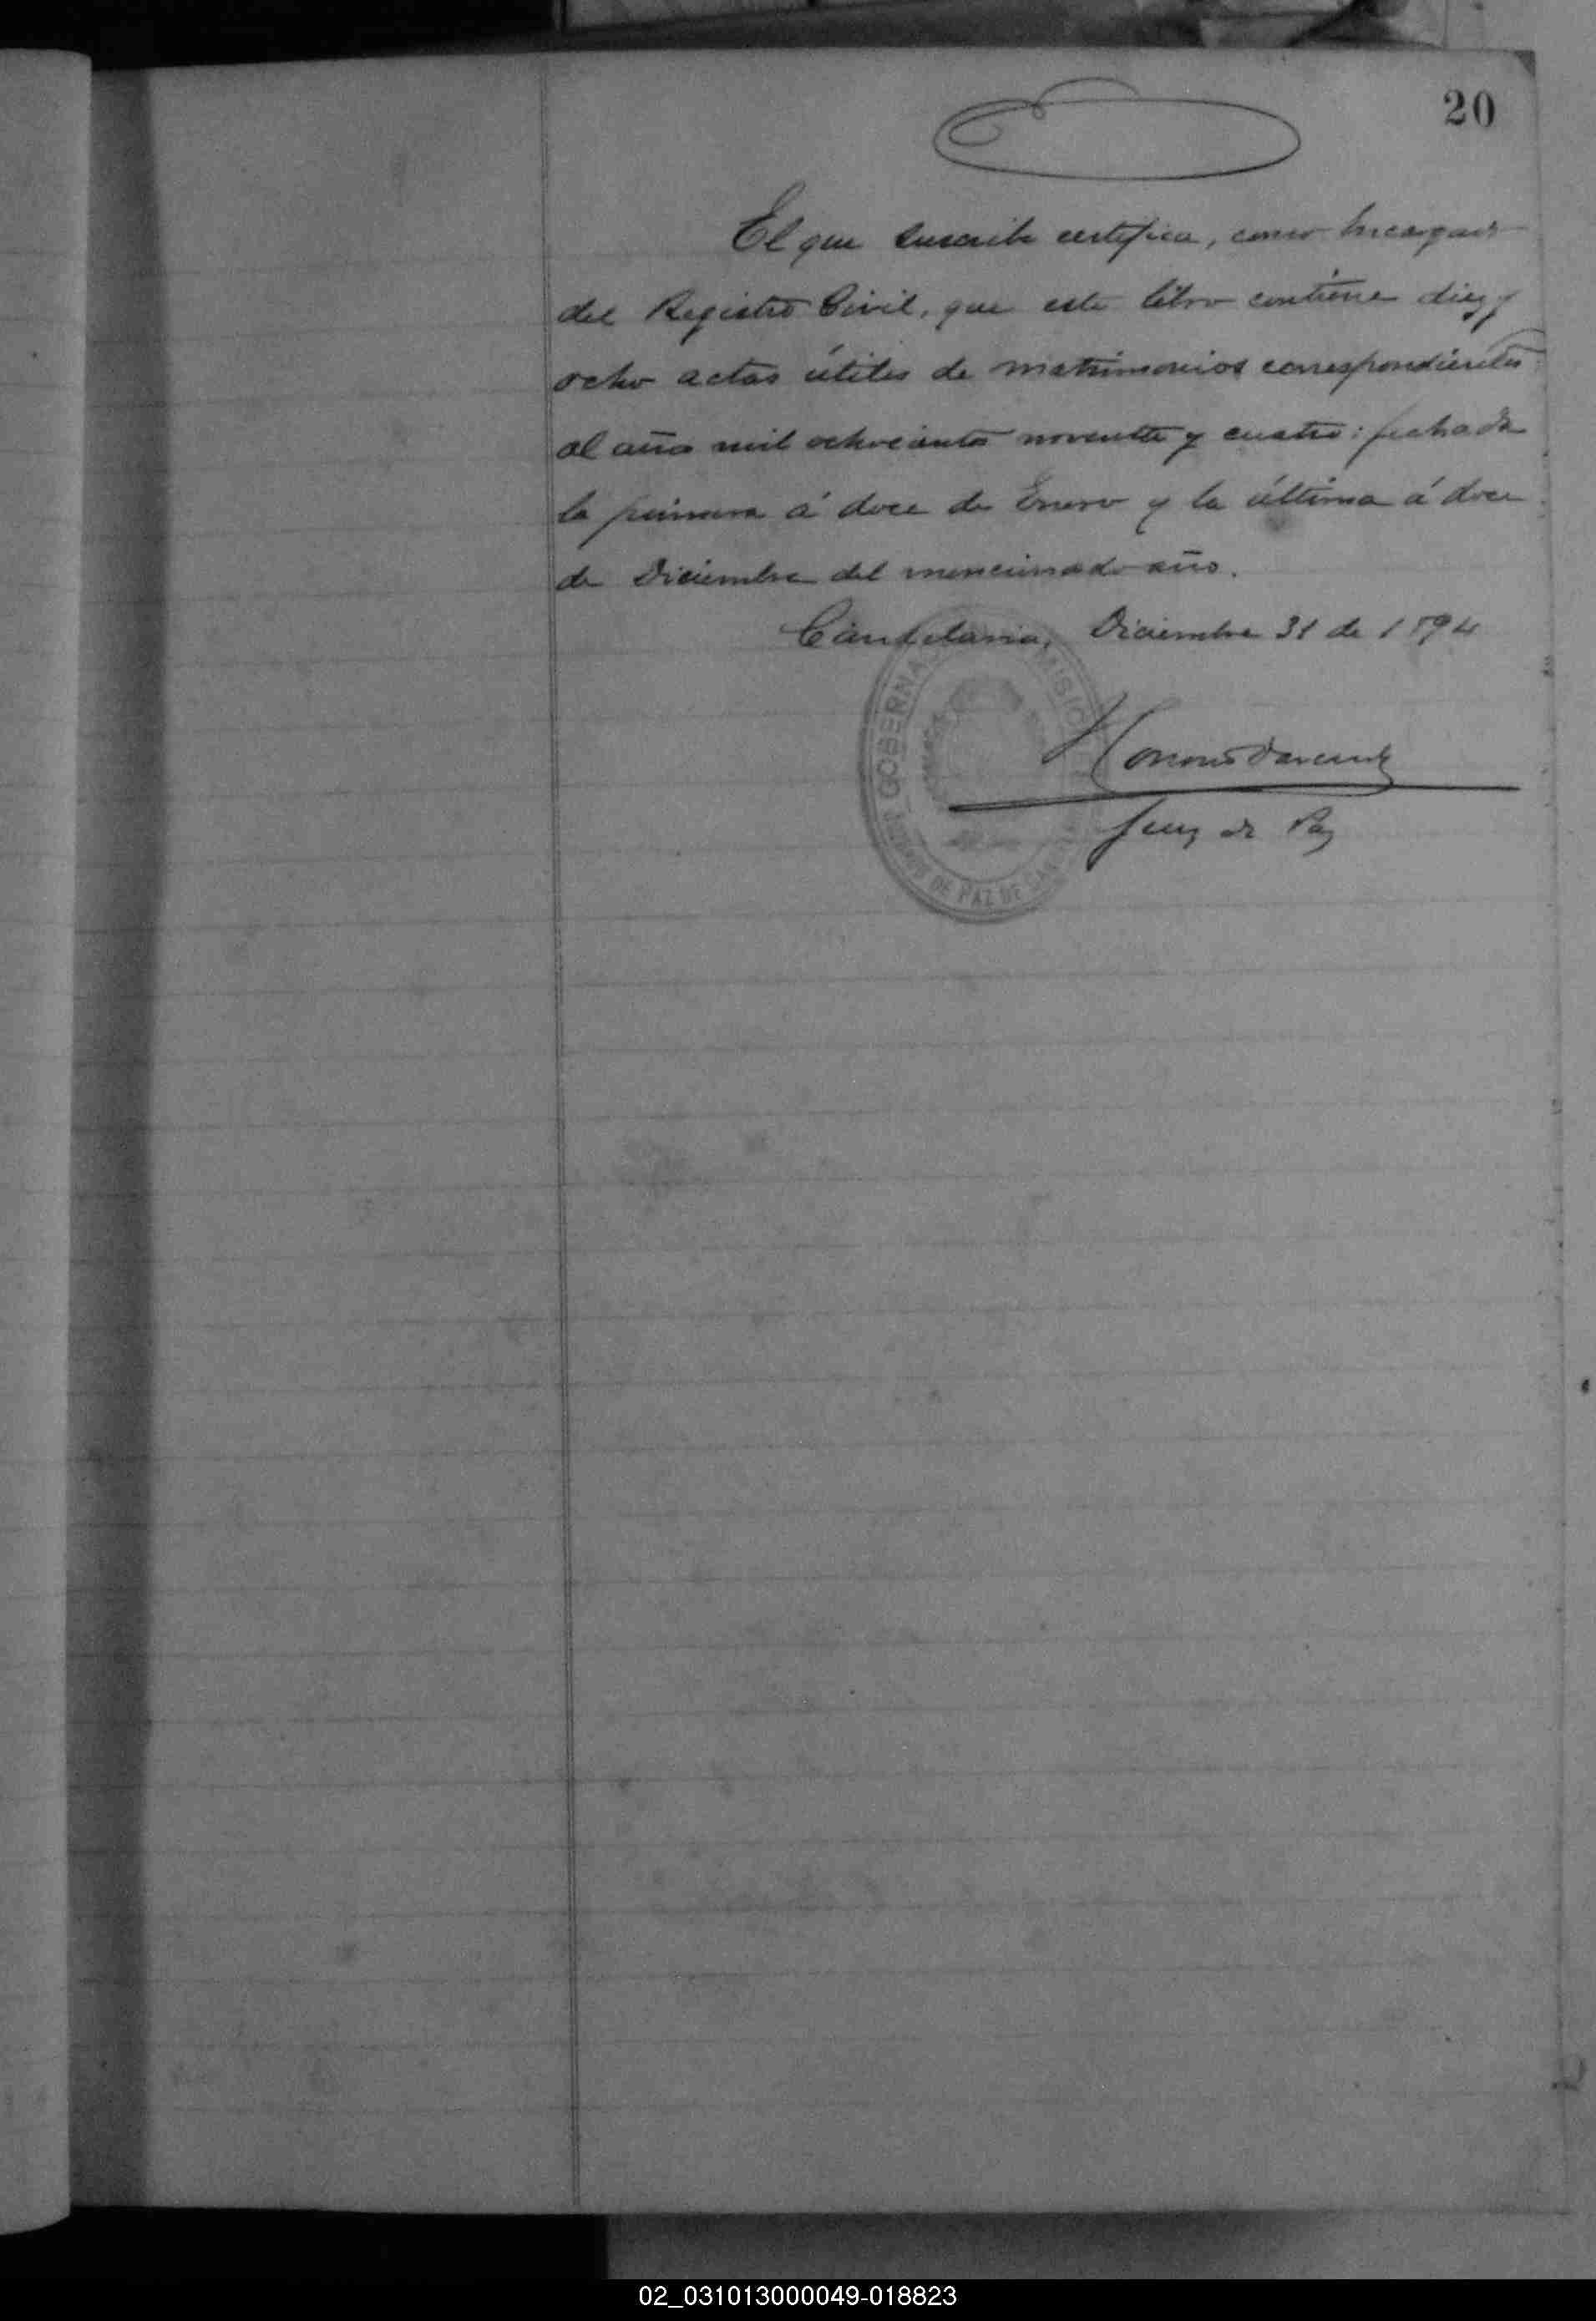 20
El que suscribe certifica, como Encargado
del Registro Civil, que este libro contiene diez y
ocho actas útiles de matrimonios correspondientes
al año mil ochocientos noventa y cuatro: fechada
la primera á doce de Enero y la última á doce
de Diciembre del mencionado año.
Candelaria, Diciembre 31 de 1894
GOBERNA MISIO
Juez de Paz
DE PAZ DE
02_031013000049-018823